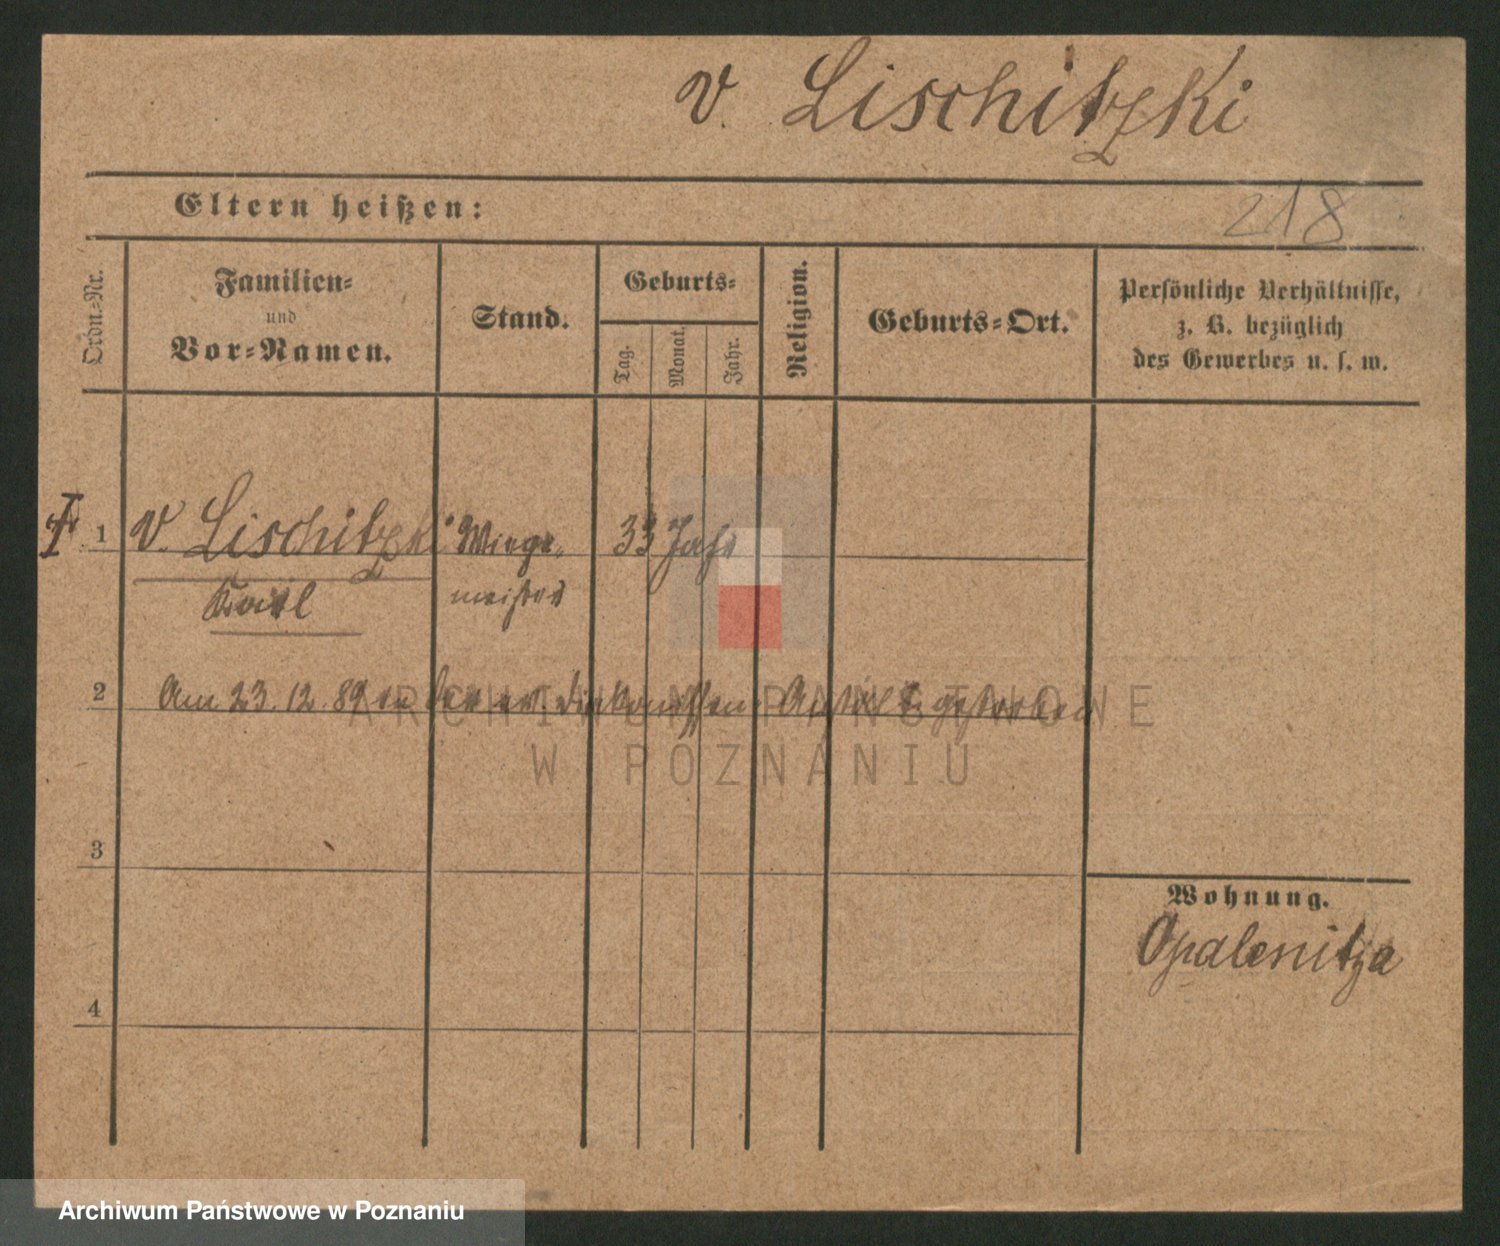 v. Lischitzki
Eltern heißen:
218
Ordn.-Nr.
Familien-
und
Vor-Namen.
Stand.
Geburts-
Tag.
Monat.
Jahr.
Religion.
Geburts-Ort.
Persönliche Verhältnisse,
z. B. bezüglich
des Gewerbes u. s. w.
1 v. Lischitzki Wiege- 33 Jahr
Karl meister
2 Am 23.12.89 in der ev. Diakonissen Anstalt gestorben
ARCHIWUM PAŃSTWOWE
W POZNANIU
3
Wohnung.
Opalenitza
4
Archiwum Państwowe w Poznaniu